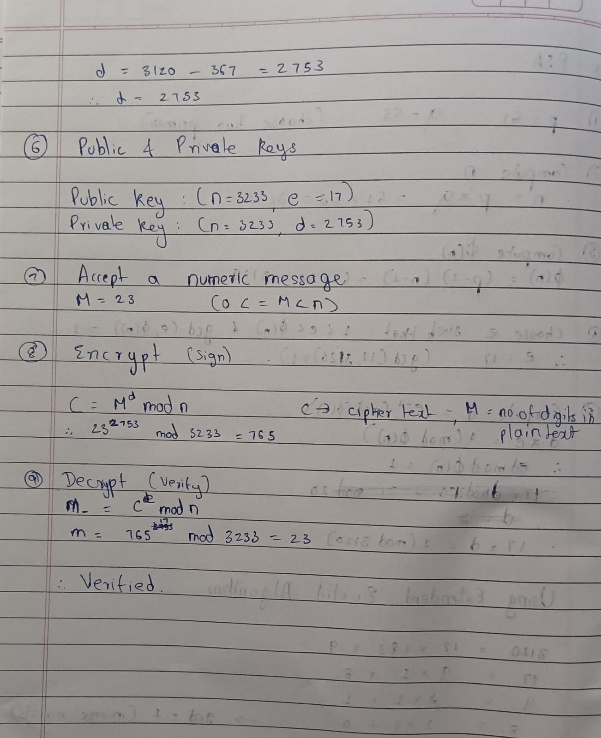 d = 3120 - 367 = 2753
∴ d = 2753
⑥ Public & Private keys
Public key : (n=3233, e = 17)
Private key : (n = 3233, d = 2753)
⑦ Accept a numeric message
M = 23 (0 <= M < n)
⑧ Encrypt (sign)
C = M^d mod n C → cipher text, M = no. of digits in
plain text
∴ 23^2753 mod 3233 = 765
⑨ Decrypt (verify)
m = C^e mod n
m = 765^17 mod 3233 = 23
∴ Verified.